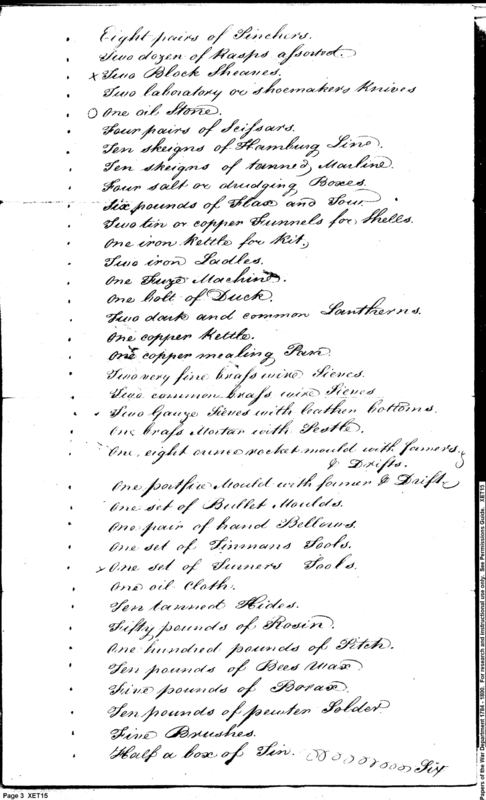 Eight pairs of Pinchers.
Two dozen of Rasps assorted.
x Two Block Sheaves.
Two laboratory or shoemakers Knives
O One oil Stone.
Four pairs of Scissars.
Ten skeigns of Hamburg Line.
Ten skeigns of tanned Marline.
Four salt or drudging Boxes.
Six pounds of Flax and Tow.
Two tin or copper Funnels for Shells.
One iron Kettle for Kit.
Two iron Ladles.
One Fuze Machine.
One bolt of Duck.
Two dark and common Lantherns.
One copper Kettle.
One copper mealing Pan.
Two very fine brass wire Sieves.
Two common brass wire Sieves
Two Gauze Sieves with leathern bottoms.
One brass Mortar with Pestle.
One, eight ounce rocket mould with formers
& Drifts.
One portfire Mould with former & Drift
One set of Bullet Moulds.
One pair of hand Bellows.
One set of Tinmans Tools.
x One set of Turners Tools.
One oil Cloth.
Ten tanned Hides.
Fifty pounds of Rosin.
One hundred pounds of Pitch.
Ten pounds of Bees Wax.
Five pounds of Borax.
Ten pounds of pewter Solder.
Five Brushes.
Half a box of Tin. Six
Page 3 XET15
Papers of the War Department 1784 - 1800. For research and instructional use only. See Permissions Guide. XET15